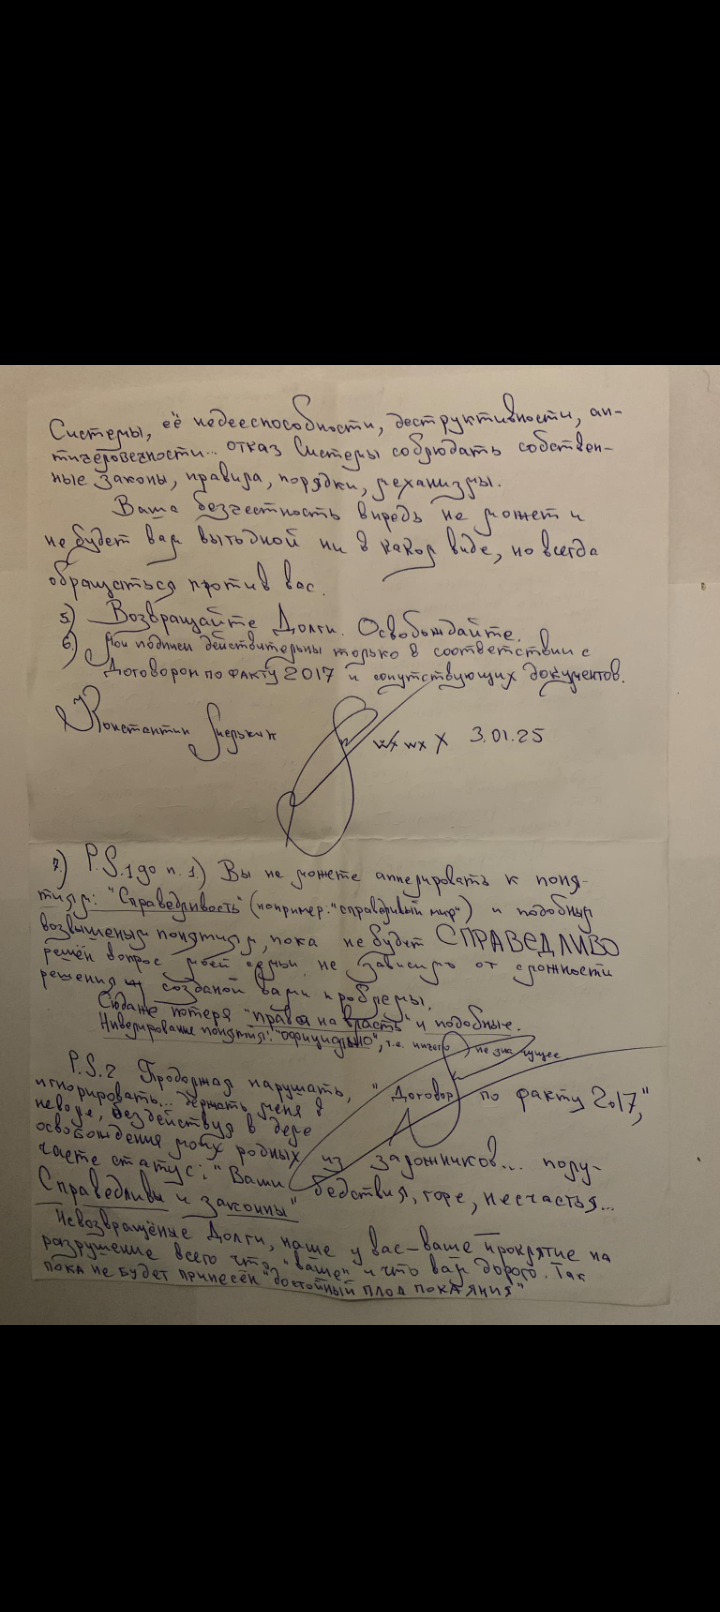 Системы, её недееспособности, деструктивности, ан-
тичеловечности... отказ Системы соблюдать собствен-
ные законы, правила, порядки, механизмы.
Ваша безчестность впредь не может и
не будет вам выгодной ни в каком виде, но всегда
обращаться против вас.
5) Возвращайте Долги. Освобождайте.
6) Мои подписи действительны только в соответствии с
Договором по факту 2017 и сопутствующих документов.
Константин 3.01.25
7) P.S.1 до п. 1.) Вы не можете аппелировать к поня-
тиям: "Справедливость" (например: "справедливый мир") и подобным
возвышеным понятиям, пока не будет СПРАВЕДЛИВО
решён вопрос моей семьи, не зависимо от сложности
решения созданой вами проблемы.
Сюда же потеря "права на власть" и подобные.
Нивелирование понятия: "официально", т.е. ничего не значущее.
P.S.2 Продолжая нарушать, "Договор по факту 2017,"
игнорировать... держать меня в
неволе, бездействуя в деле
освобождения моих родных из заложников... полу-
чаете статус: "Ваши бедствия, горе, несчастья...
Справедливы и законны"
Невозвращёные Долги, наше у вас – ваше проклятие на
разрушение всего что "ваше" и что вам дорого. Так
пока не будет принесён "достойный плод покаяния"